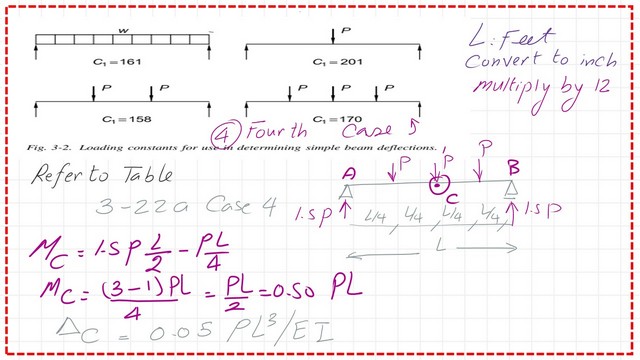 w
P
L: Feet
Convert to inch
multiply by 12
C₁ = 161
C₁ = 201
P P
P P P
C₁ = 158
C₁ = 170
④ Fourth Case
Fig. 3-2. Loading constants for use in determining simple beam deflections.
Refer to Table
3-22a Case 4
A P P P B
C
1.5P L/4 L/4 L/4 L/4 1.5P
L
M_C = 1.5P L/2 - PL/4
M_C = (3-1)PL/4 = PL/2 = 0.50 PL
Δ_C = 0.05 PL³/EI